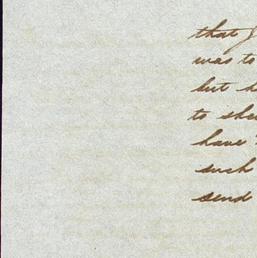 that
was to
but
to
have
such
send